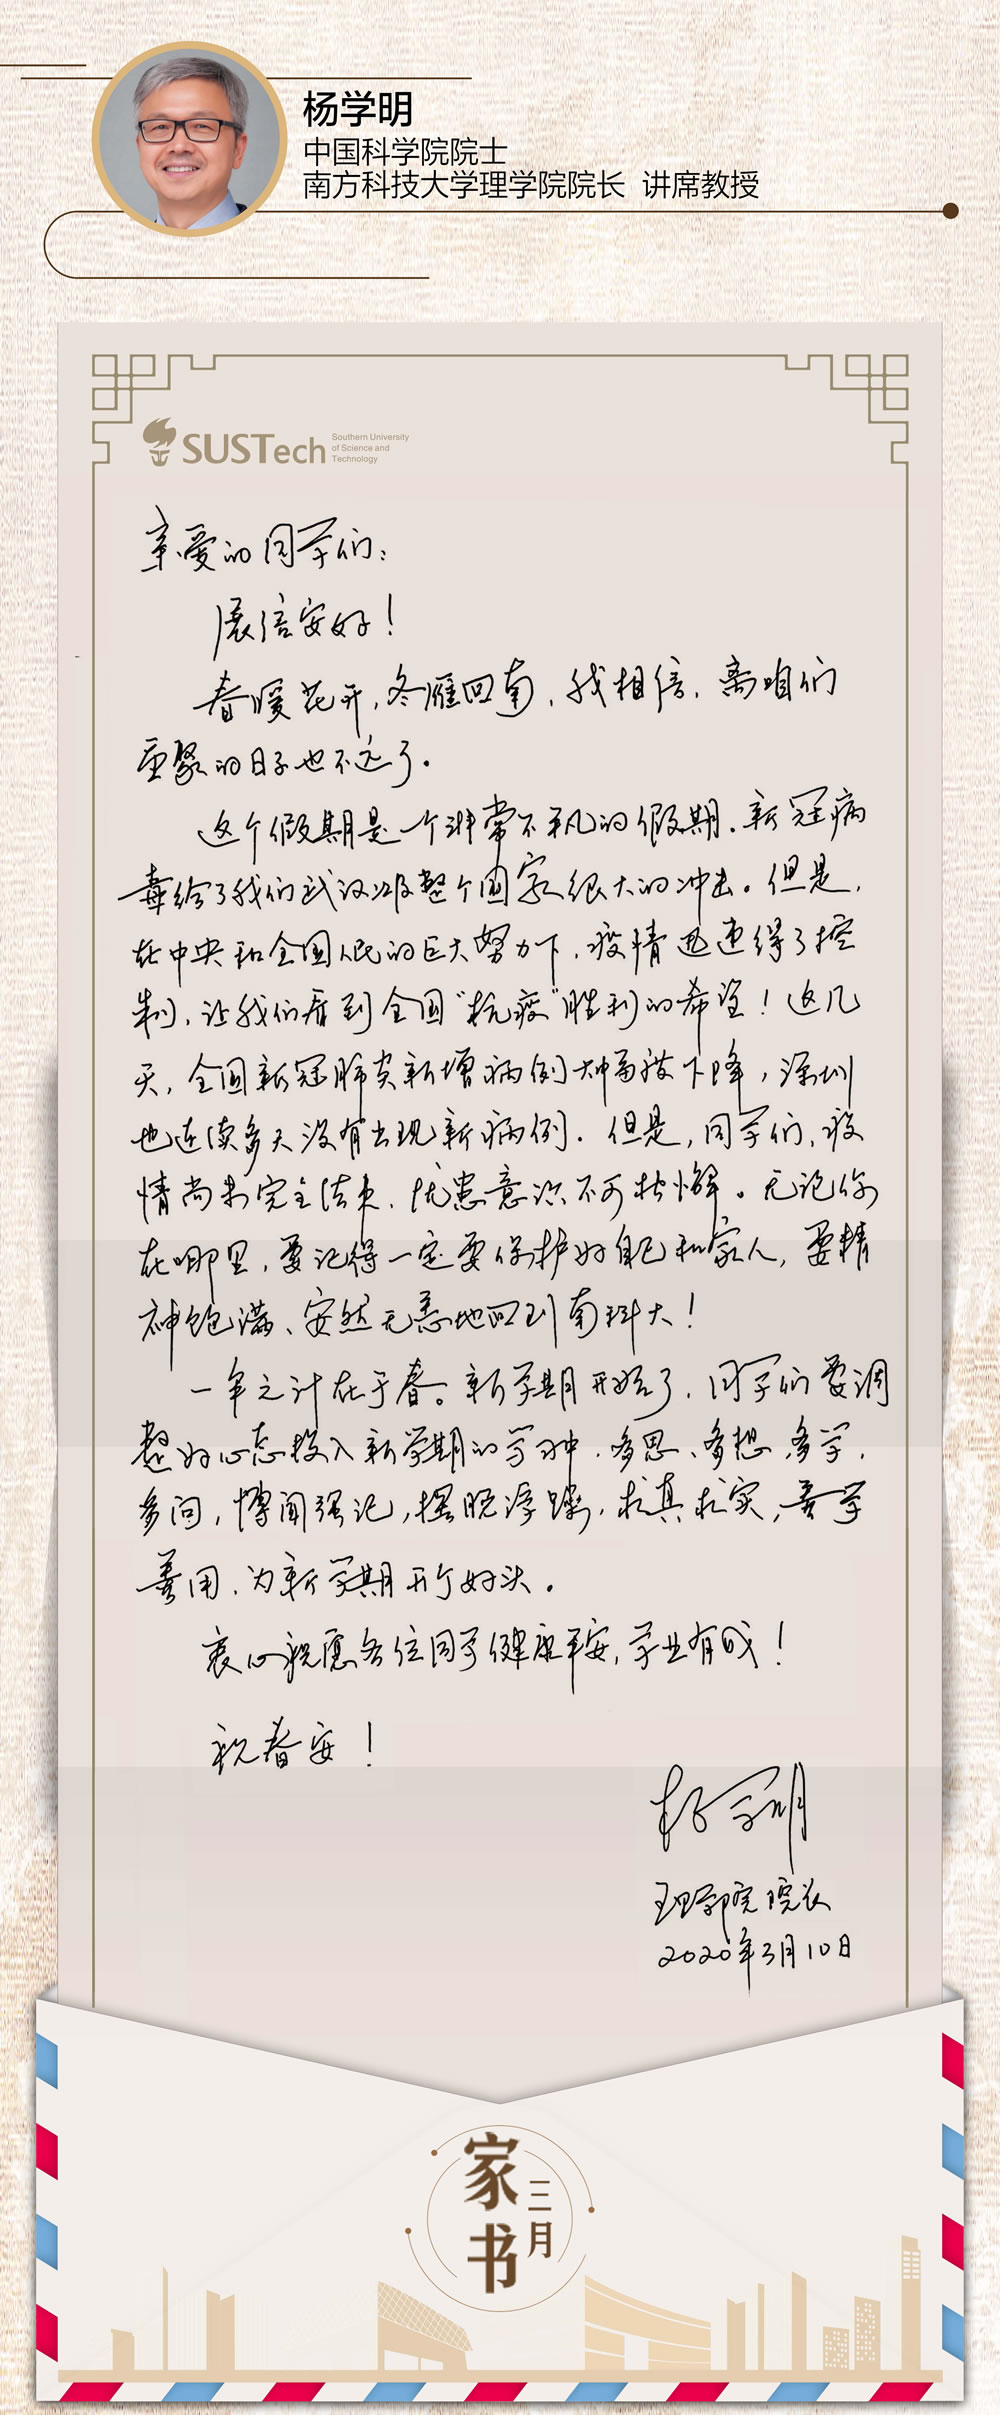 杨学明
中国科学院院士
南方科技大学理学院院长 讲席教授
SUSTech
Southern University
of Science and
Technology
亲爱的同学们：
展信安好！
春暖花开，冬雁回南，我相信，离咱们
重聚的日子也不远了。
这个假期是一个非常不平凡的假期，新冠病
毒给了我们武汉以及整个国家很大的冲击。但是，
在中央和全国人民的巨大努力下，疫情迅速得了控
制，让我们看到全国“抗疫”胜利的希望！这几
天，全国新冠肺炎新增病例大幅度下降，深圳
也连续多天没有出现新病例。但是，同学们，疫
情尚未完全结束，忧患意识不可松懈。无论你
在哪里，要记得一定要保护好自己和家人，要精
神饱满、安然无恙地回到南科大！
一年之计在于春。新学期开始了，同学们要调
整好心态投入新学期的学习中，多思、多想、多学、
多问，博闻强记，摆脱浮躁，求真求实，善学
善用，为新学期开个好头。
衷心祝愿各位同学健康平安，学业有成！
祝春安！
杨学明
理学院院长
2020年3月10日
家书
三月